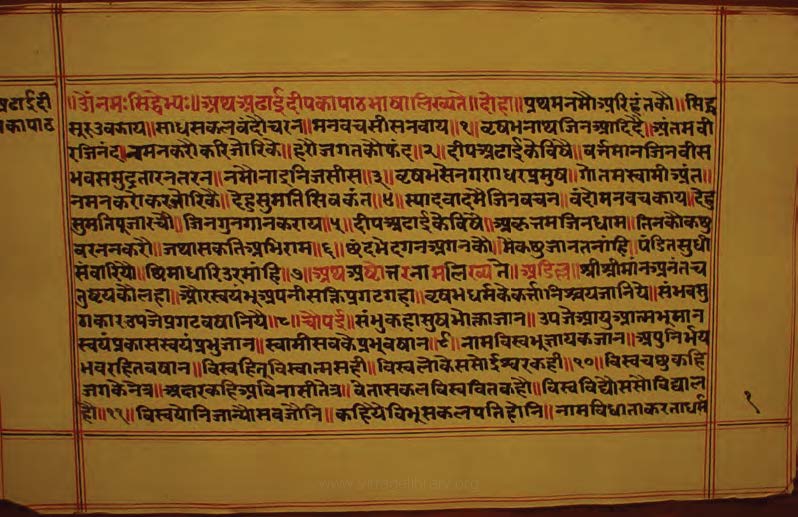 अढाईदी
पकापाठ
॥ॐनमःसिद्धेभ्यः॥अथअढाईदीपकापाठभाषालिख्यते॥दोहा॥प्रथमनमौअरिहंतकौ॥सिद्ध
सूरउवकाय॥साधसकलवंदौचरन॥मनवचसीसनवाय॥१॥वृषभनाथजिनआदिदै॥अंतमवी
रजिनंद॥नमनकरौकरिजोरिके॥हरोजगतकौफंद॥२॥दीपअढाईकेविषै॥वर्त्तमानजिनवीस
भवसमुद्रतारनतरन॥नमौनाइनिजसीस॥३॥वृषभसेनगराधरप्रमुष॥गौतमस्वामीअंत॥
नमनकरौकरजोरिकै॥देहुसुमतिसिवकंत॥४॥स्यादवादमैजिनवचन॥वंदौमनवचकाय॥देहु
सुमतिपूजारचौ॥जिनगुनगानकराय॥५॥दीपअढाईकेविषै॥अकृत्तमजिनधाम॥तिनकौकछु
वरननकरौ॥जथासकतिअभिराम॥६॥छंदभेदगनअगनकौ॥मैकछुजानतनांहि॥पंडितसुधी
सवारियौ॥छिमाधारिउरमांहि॥७॥अथअष्टोत्तरनामलिख्यते॥अडिल्ल॥श्रीश्रीमानअनंतच
तुष्टयकौलहा॥औरस्वयंभूअपनीसक्तिप्रगटगहा॥वृषभधर्मकेकर्त्तानिश्चयजानिये॥संभवसु
गकारउपजेप्रगटवषानियै॥८॥चौपई॥संभुकहासुषभोक्ताजान॥उपजेआयुआत्मभूमान
स्वयंप्रकासस्वयंप्रभुजान॥स्वामीसवकेप्रभूवषान॥९॥नामविस्वभूज्ञायकजान॥अपुनिर्भय
भवरहितवषान॥विस्वहितूविस्वात्मसही॥विस्वलोकेससोईश्वरकही॥१०॥विस्वचछुकहि
जगकेनेत्र॥अक्षरकहिअविनासीतेत्र॥वेतासकलविस्ववितकहो॥विस्वविद्यौससोविद्याल
हौ॥११॥विस्वयोनिजान्यौसवजौनि॥कहियेविभूसकलपतिहोनि॥नामविधाताकरताधर्म
१
www.vitragelibrary.org